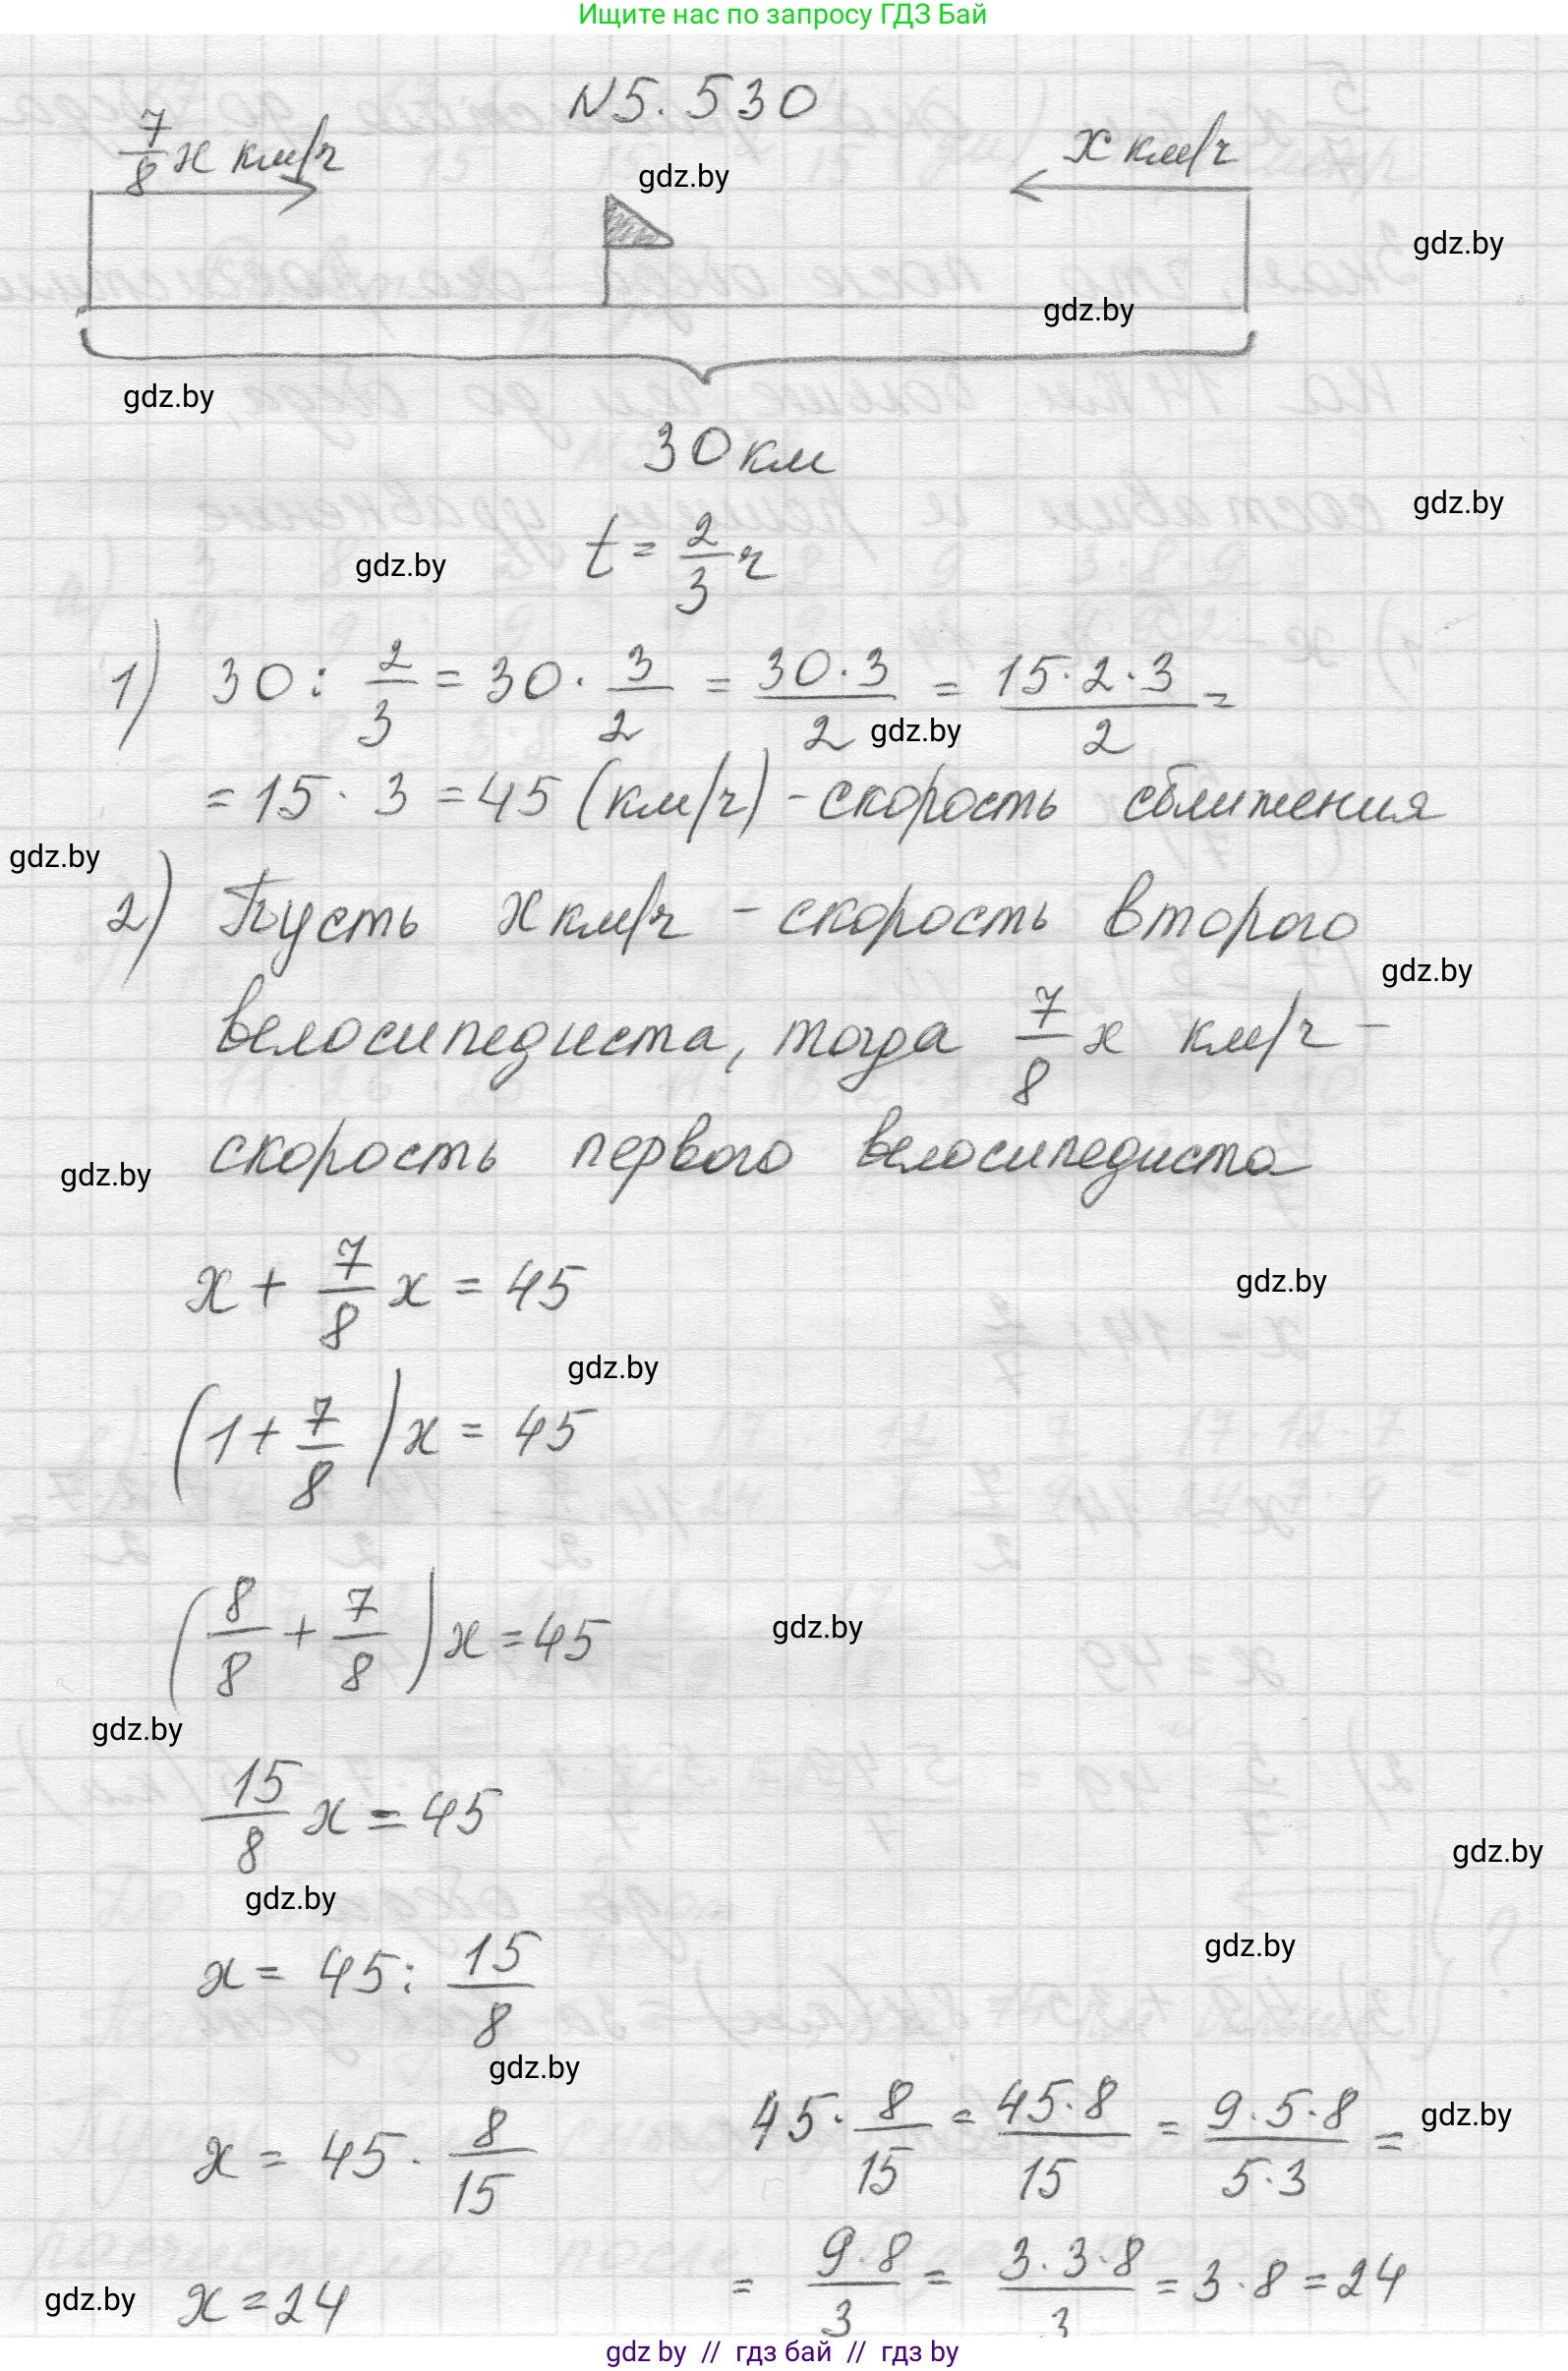 Ищите нас по запросу ГДЗ Бай
N5.530
7/8 x км/ч
x км/ч
gdz.by
gdz.by
gdz.by
gdz.by
30 км
gdz.by
t = 2/3 ч
gdz.by
1) 30 : 2/3 = 30 · 3/2 = 30·3/2 = 15·2·3/2 =
gdz.by
= 15 · 3 = 45 (км/ч) - скорость сближения
gdz.by
2) Пусть x км/ч - скорость второго
gdz.by
велосипедиста, тогда 7/8 x км/ч -
скорость первого велосипедиста
gdz.by
x + 7/8 x = 45
gdz.by
gdz.by
(1 + 7/8) x = 45
(8/8 + 7/8) x = 45
gdz.by
gdz.by
15/8 x = 45
gdz.by
gdz.by
x = 45 : 15/8
gdz.by
gdz.by
x = 45 · 8/15
45 · 8/15 = 45·8/15 = 9·5·8/5·3 =
gdz.by
= 9·8/3 = 3·3·8/3 = 3·8 = 24
gdz.by
x = 24
gdz by // гдз бай // гдз by